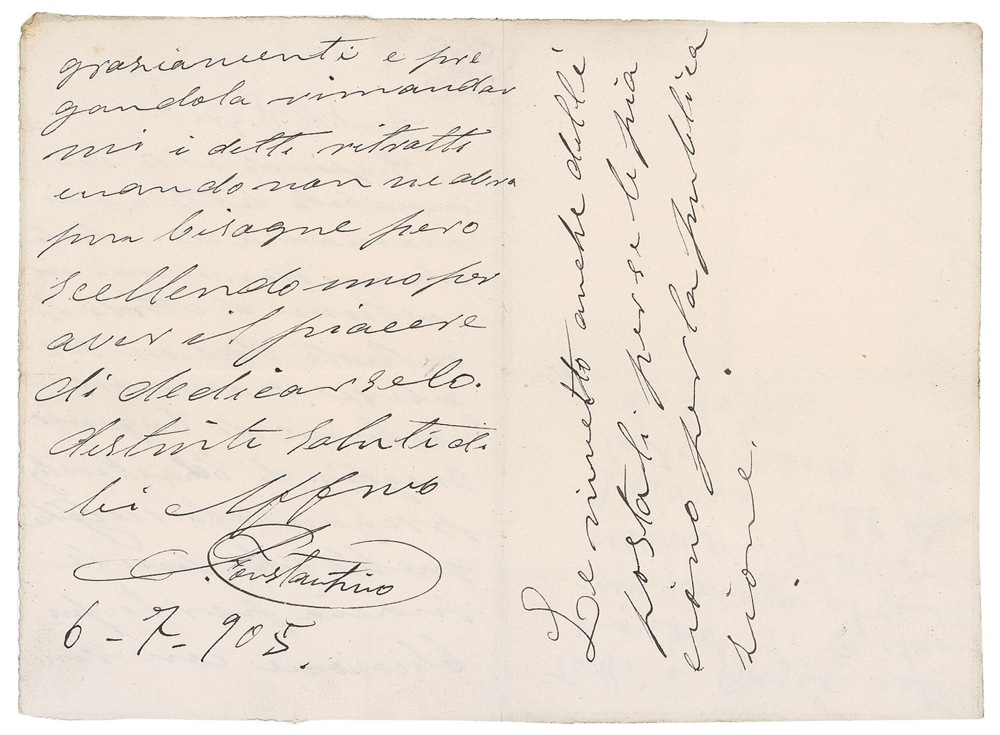 grasiamenti e pre
gandola rimandar
mi i detti ritratti
cuando non ne avra
piu bisogne pero
scellendo uno per
aver il piacere
di dedicarselo.
distinti saluti di
lei Affmo
Constantino
6-7-905.
Le rimetto anche delle
postali per se le pia
ciono per la publica
sione.